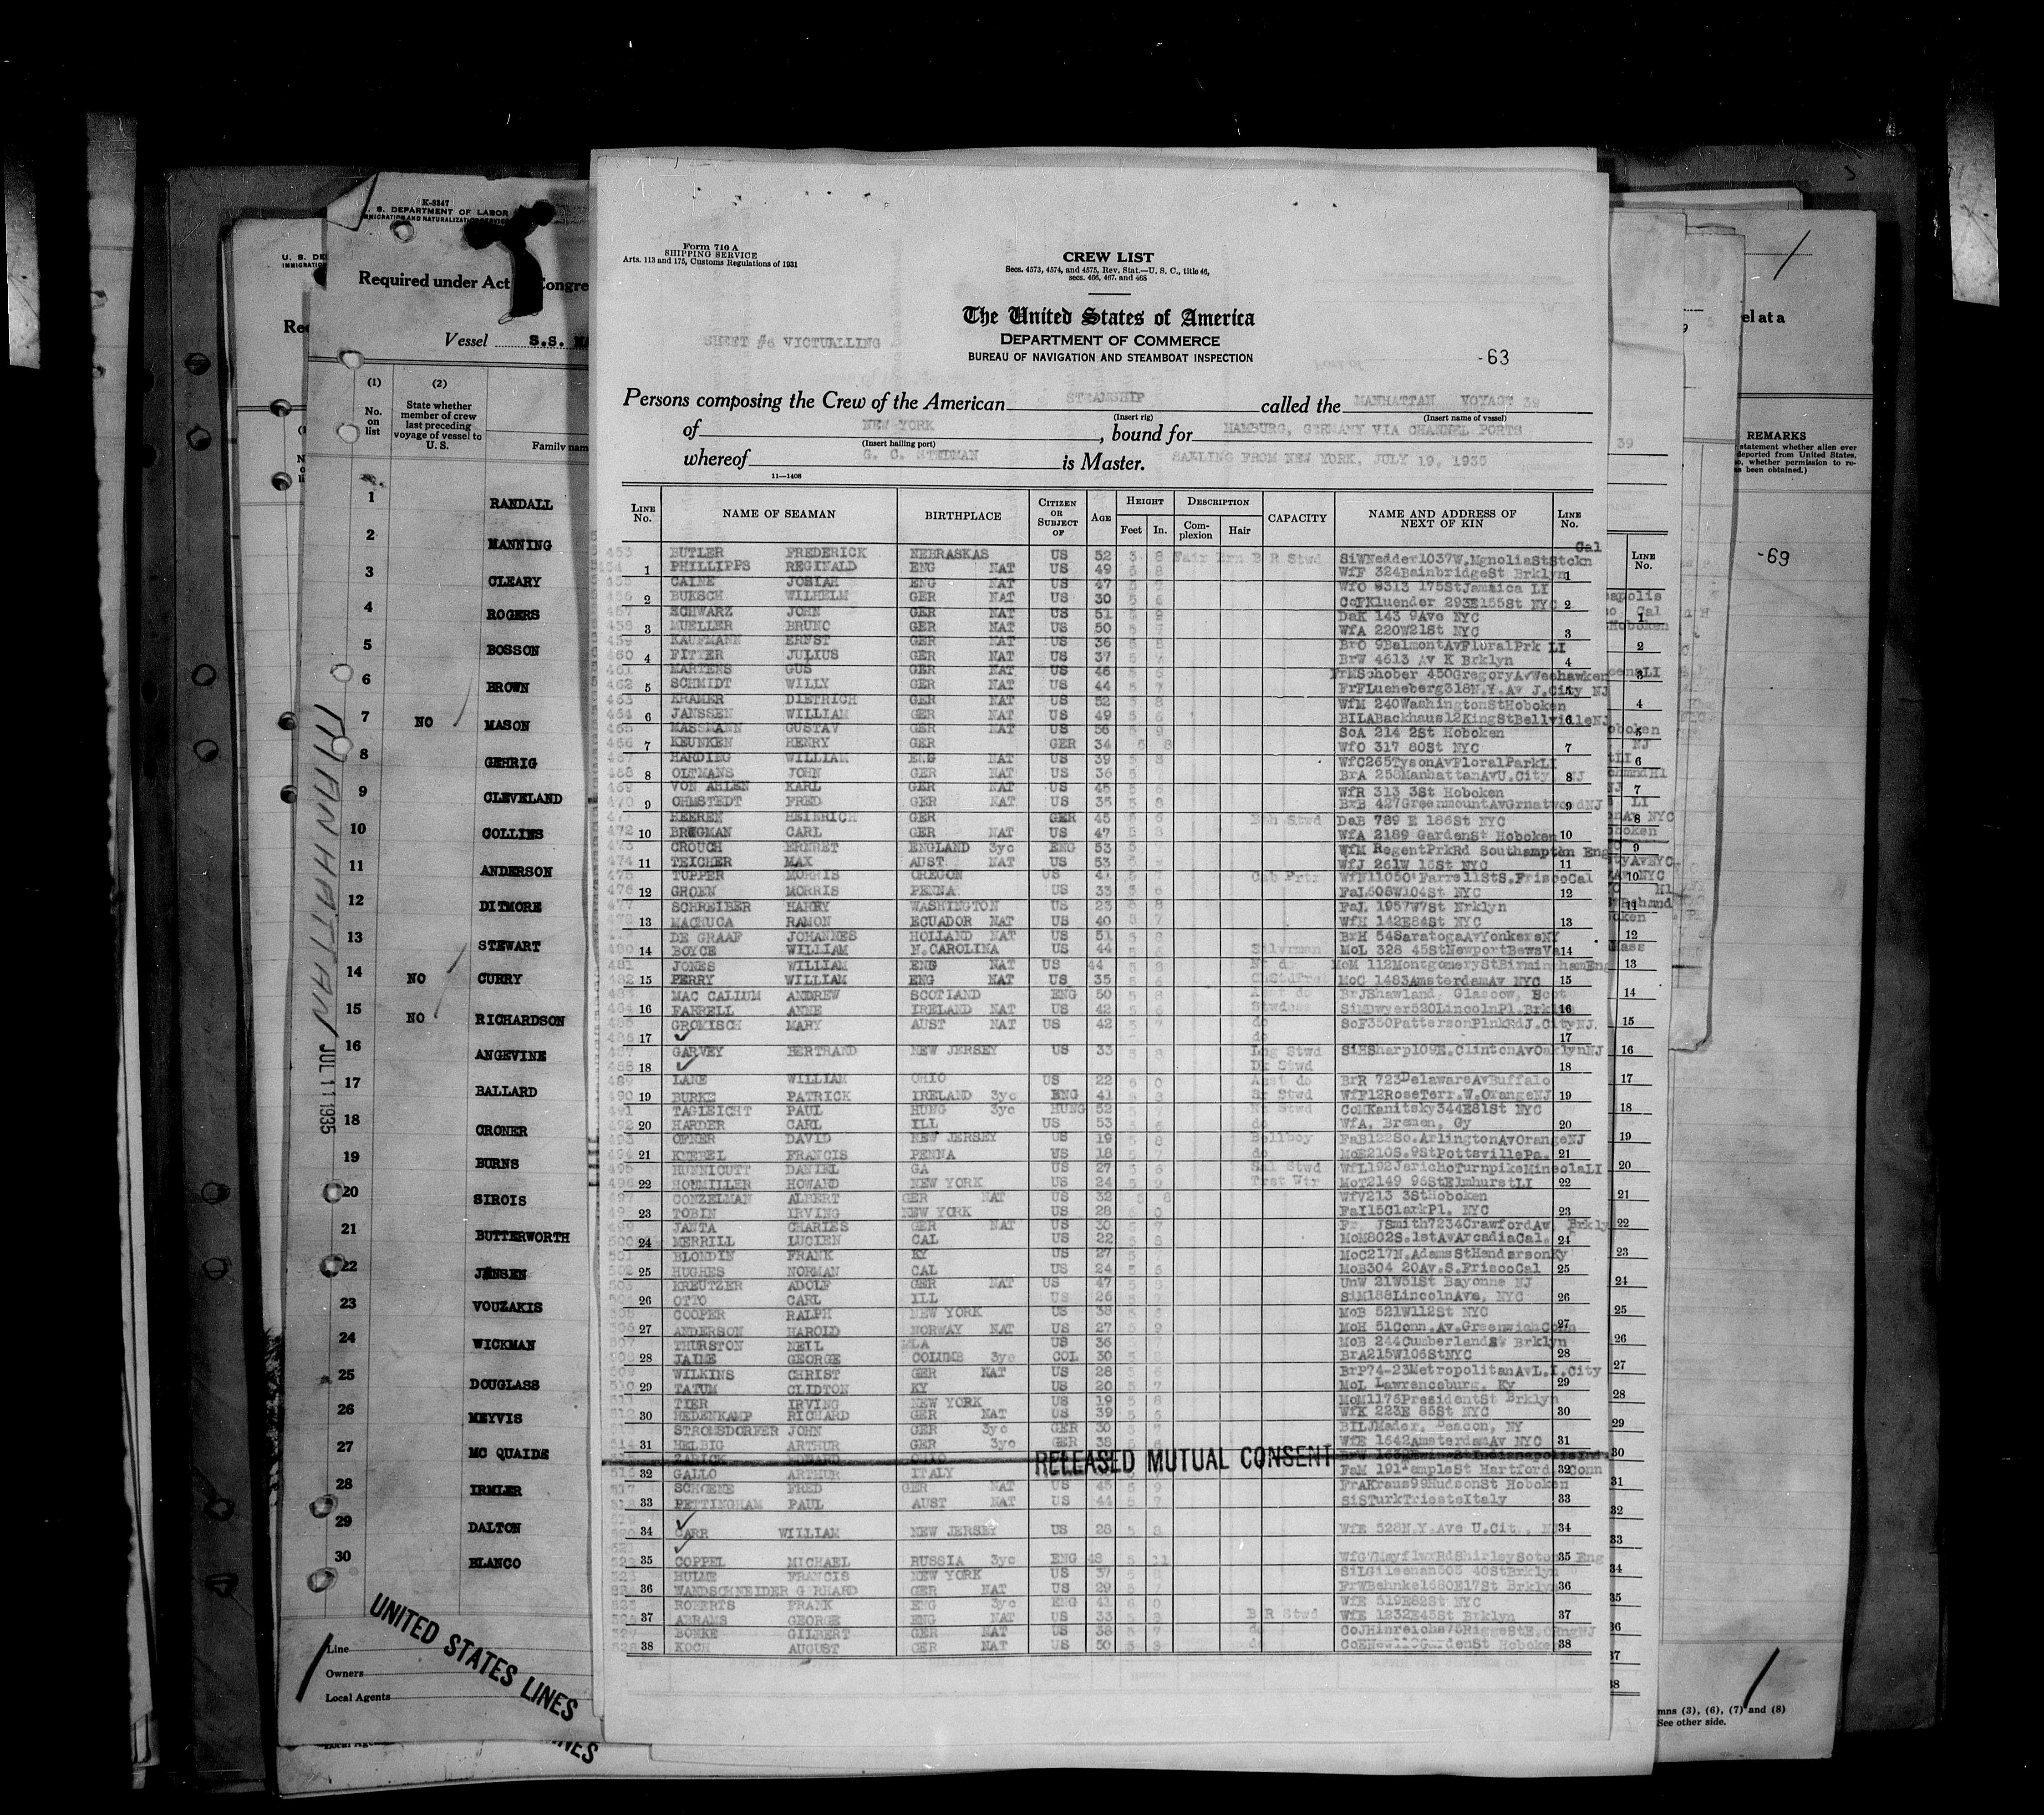 K-8347
U. S. DEPARTMENT OF LABOR
Required under Act
Congre
Vessel S.S. MA
(1)
No. on list
(2)
State whether member of crew last preceding voyage of vessel to U. S.
Family nam
1 RANDALL
2 MANNING
3 CLEARY
4 ROGERS
5 BOSSON
6 BROWN
7 NO MASON
8 GEHRIG
9 CLEVELAND
10 COLLINS
11 ANDERSON
12 DITMORE
13 STEWART
14 NO CURRY
15 NO RICHARDSON
16 ANGEVINE
17 BALLARD
18 CRONER
19 BURNS
20 SIROIS
21 BUTTERWORTH
22 JENSEN
23 VOUZAKIS
24 WICKMAN
25 DOUGLASS
26 MEYVIS
27 MC QUAIDE
28 IRMLER
29 DALTON
30 BLANCO
MANHATTAN JUL 11 1935
UNITED STATES LINES
Line
Owners
Local Agents
Form 710 A
SHIPPING SERVICE
Arts. 113 and 175, Customs Regulations of 1931
CREW LIST
Secs. 4573, 4574, and 4575, Rev. Stat.—U. S. C., title 46,
secs. 466, 467, and 468
The United States of America
DEPARTMENT OF COMMERCE
BUREAU OF NAVIGATION AND STEAMBOAT INSPECTION
SHEET #6 VICTUALLING
-63
Persons composing the Crew of the American STEAMSHIP called the MANHATTAN VOYAGE 39
(Insert rig) (Insert name of vessel)
of NEW YORK, bound for HAMBURG, GERMANY VIA CHANNEL PORTS
(Insert hailing port)
whereof G. C. STEDMAN is Master. SAILING FROM NEW YORK, JULY 19, 1935
11—1408
LINE No. NAME OF SEAMAN BIRTHPLACE CITIZEN OR SUBJECT OF AGE HEIGHT Feet In. DESCRIPTION Complexion Hair CAPACITY NAME AND ADDRESS OF NEXT OF KIN LINE No.
453 BUTLER FREDERICK NEBRASKAS US 52 5 8 Fair Brn B R Stwd SiWNedder1037W.MgnoliaStStckn Cal
1 PHILLIPPS REGINALD ENG NAT US 49 5 8 WfF 324BainbridgeSt Brklyn 1
CAINE JOSIAH ENG NAT US 47 WfO 9313 175StJamaica LI
456 2 BUKSCH WILHELM GER NAT US 30 5 6 CoFKluender 293E155St NYC 2
457 SCHWARZ JOHN GER NAT US 51 DaK 143 9Ave NYC
458 3 MUELLER BRUNO GER NAT US 50 WfA 220W21St NYC 3
459 KAUFMANN ERNST GER NAT US 36 BrO 9BalmontAvFloralPrk LI
460 4 FITTER JULIUS GER NAT US 37 BrW 4613 Av K Brklyn 4
461 MARTENS GUS GER NAT US 46 FrMSchober 450GregoryAvWeehawken
462 5 SCHMIDT WILLY GER NAT US 44 5 7 FrFLueneberg318N.Y.Av J.City NJ 5
463 KRAMER DIETRICH GER NAT US 52 WfM 240WashingtonStHoboken
464 6 JANSSEN WILLIAM GER NAT US 49 5 6 BILABackhaus12KingStBellvilleNJ 6
465 MASSMANN GUSTAV GER NAT US 56 SoA 214 2St Hoboken
466 7 KEUNKEN HENRY GER GER 34 6 8 WfO 317 80St NYC 7
467 HARDING WILLIAM ENG NAT US 39 5 8 WfC265TysonAvFloralParkLI
468 8 OLTMANS JOHN GER NAT US 36 BrA 258ManhattanAvU.City NJ 8
469 VON AHLEN KARL GER NAT US 45 WfR 313 3St Hoboken
470 9 OHMSTEDT FRED GER NAT US 35 5 8 BrB 427GreenmountAvGrnatwoodNJ 9
HEEREN HEINRICH GER GER 45 5 6 Bth Stwd DaB 789 E 186St NYC
472 10 BRUGMAN CARL GER NAT US 47 5 8 WfA 2189 GardenSt Hoboken 10
CROUCH ERNRET ENGLAND 3yc ENG 53 WfM RegentPrkRd Southampton Eng
474 11 TEICHER MAX AUST NAT US 53 WfJ 261W 16St NYC 11
475 TUPPER MORRIS OREGON US 41 Cab Prtr WfN11050'FarrellStS.FriscoCal
476 12 GROEN MORRIS PENNA US 33 5 6 FaL608W104St NYC 12
SCHREIBER HARRY WASHINGTON US 23 FaJ. 1957W7St Nrklyn
13 MACHUCA RAMON ECUADOR NAT US 40 5 7 WfH 142E84St NYC 13
DE GRAAF JOHANNES HOLLAND NAT US 51 5 8 BrH 54SaratogaAvYonkersNY
480 14 BOYCE WILLIAM N.CAROLINA US 44 Silvrman MoL 328 45StNewportBewsVa 14
481 JONES WILLIAM ENG NAT US 44 5 8 Nt do MoM 112MontgomeryStBirminghamEng
482 15 PERRY WILLIAM ENG NAT US 35 MoC 1483AmsterdamAv NYC 15
MAC CALIUM ANDREW SCOTLAND ENG 50 5 8 Asst do BrJShawland, Glascow, Scot
484 16 FARRELL ANNE IRELAND NAT US 42 Stwdess SiMDwyer520LincolnPl Brkl 16
GROMISCH MARY AUST NAT US 42 do SoF350PattersonPlnkRdJ.CityNJ.
486 17 ✓ do 17
GARVEY BERTRAND NEW JERSEY US 33 5 8 Lng Stwd SiHSharp109E.ClintonAvOaklynNJ
488 18 ✓ Dk Stwd 18
489 LANE WILLIAM OHIO US 22 6 0 Asst do BrR 723DelawareAvBuffalo
490 19 BURKE PATRICK IRELAND 3yc ENG 41 5 8 Sr Stwd WfF12RoseTerr.W.OrangeNJ 19
491 TAGLEICHT PAUL HUNG 3yc HUNG 52 Nt Stwd CoMKanitsky344E81St NYC
492 20 HARDER CARL ILL US 53 do WfA. Bremen, Gy 20
493 OFNER DAVID NEW JERSEY US 19 5 8 Bellboy FaB122So.ArlingtonAvOrangeNJ
494 21 KNEBEL FRANCIS PENNA US 18 5 7 do MoE210S.9StPottsvillePa. 21
495 HUNNICUTT DANIEL GA US 27 5 6 Sal Stwd WfL192JerichoTurnpikeMineolaLI
496 22 HOUMILLER HOWARD NEW YORK US 24 5 9 Trst Wtr MoT2149 96StElmhurstLI 22
CONZELMAN ALBERT GER NAT US 32 5 8 WfV213 3StHoboken
23 TOBIN IRVING NEW YORK US 28 6 0 FaI15ClarkPl. NYC 23
499 JANTA CHARLES GER NAT US 30 5 7 JSmith7234CrawfordAv, Brkly
500 24 MERRILL LUCIEN CAL US 22 5 8 MoM802S.1stAvArcadiaCal. 24
501 BLONDIN FRANK KY US 27 MoC217N.AdamsStHendersonKy
502 25 HUGHES NORMAN CAL US 24 5 6 MoB304 20Av.S.FriscoCal 25
KREUTZER ADOLF GER NAT US 47 UnW 21W51St Bayonne NJ
26 OTTO CARL ILL US 26 SiM188LincolnAve, NYC 26
COOPER RALPH NEW YORK US 38 MoB 521W112St NYC
27 ANDERSON HAROLD NORWAY NAT US 27 5 9 MoH 51Conn.Av.GreenwichConn 27
THURSTON NEIL US 36 MoB 244CumberlandSt Brklyn
28 JAIME GEORGE COLUMB 3yc COL 30 BrA215W106StNYC 28
WILKINS CHRIST GER NAT US 28 5 6 BrP74-23MetropolitanAvL.I.City
510 29 TATUM CLIDTON KY US 20 5 7 MoL Lawrenceburg, Ky 29
TIER IRVING NEW YORK US 19 5 8 MoM1175PresidentSt Brklyn
512 30 HEDENKAMP RICHARD GER NAT US 39 WfK 223E 85St NYC 30
STROMSDORFER JOHN GER 3yc GER 30 BILJMader, Beacon, NY
514 31 HELBIG ARTHUR GER 3yc GER 38 WfE 1642AmsterdamAv NYC 31
RELEASED MUTUAL CONSENT
32 GALLO ARTHUR ITALY FaM 191TempleSt Hartford Conn 32
517 SCHOENE FRED GER NAT US 45 5 9 FrAKraus99HudsonSt Hoboken
518 33 PETTINGHAM PAUL AUST NAT US 44 5 7 SiSTurkTriesteItaly 33
✓
34 CARR WILLIAM NEW JERSEY US 28 5 8 WfE 528N.Y.Ave U.Cit 34
✓
35 COPPEL MICHAEL RUSSIA 3yc ENG 48 5 11 35
HULME FRANCIS NEW YORK US 37 5 8 SiLGilseenan503 40StBrklyn
36 WANDSCHNEIDER G RHARD GER NAT US 29 5 7 FrWBehnke1680E17St Brklyn 36
ROBERTS FRANK ENG 3yc ENG 41 6 0 WfE 519E82St NYC
37 ABRAMS GEORGE ENG NAT US 33 B R Stwd WfE 1232E45St Brklyn 37
BONKE GILBERT GER NAT US 38 5 7 do CoJHinrichs75RiggsStE.ORngNJ
38 KOCH AUGUST GER NAT US 50 38
39
elata
REMARKS
statement whether alien ever
deported from United States,
whether permission to re-
been obtained.)
-69
LINE No.
mns (3), (6), (7) and (8)
See other side.